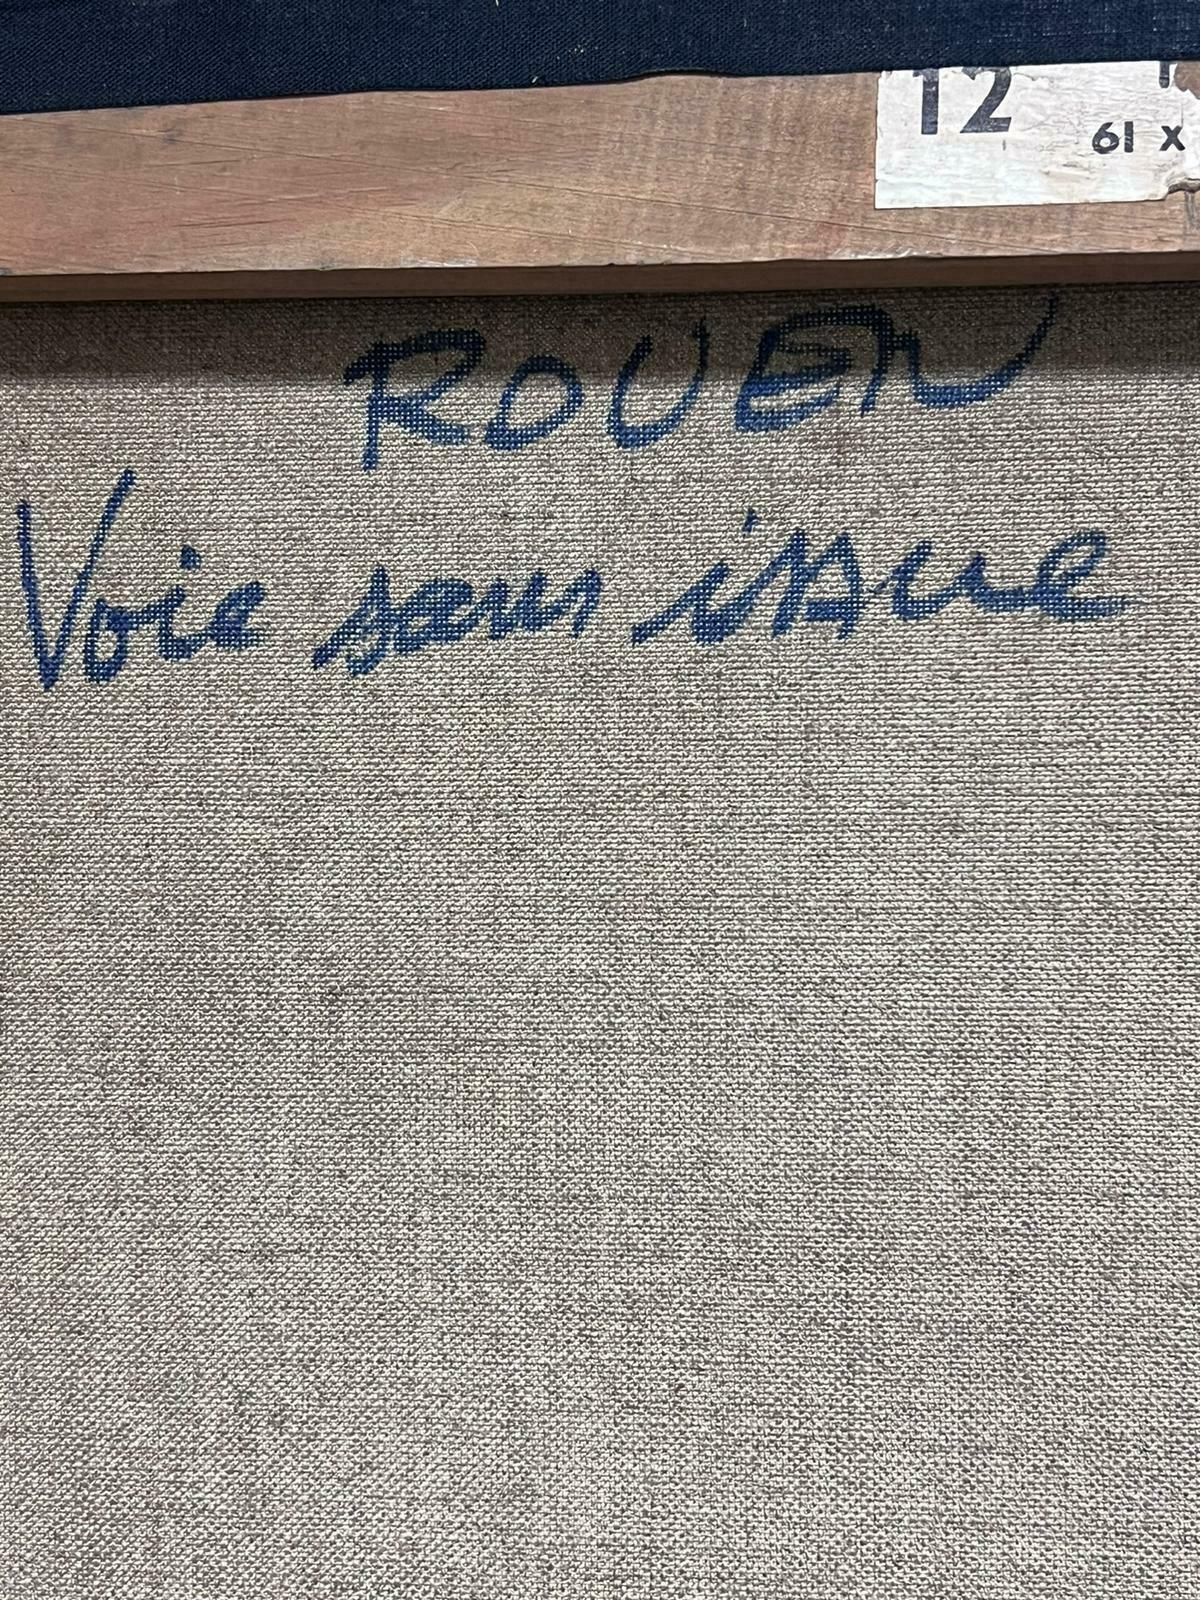 12
61 x
ROUEN
Voie sans issue